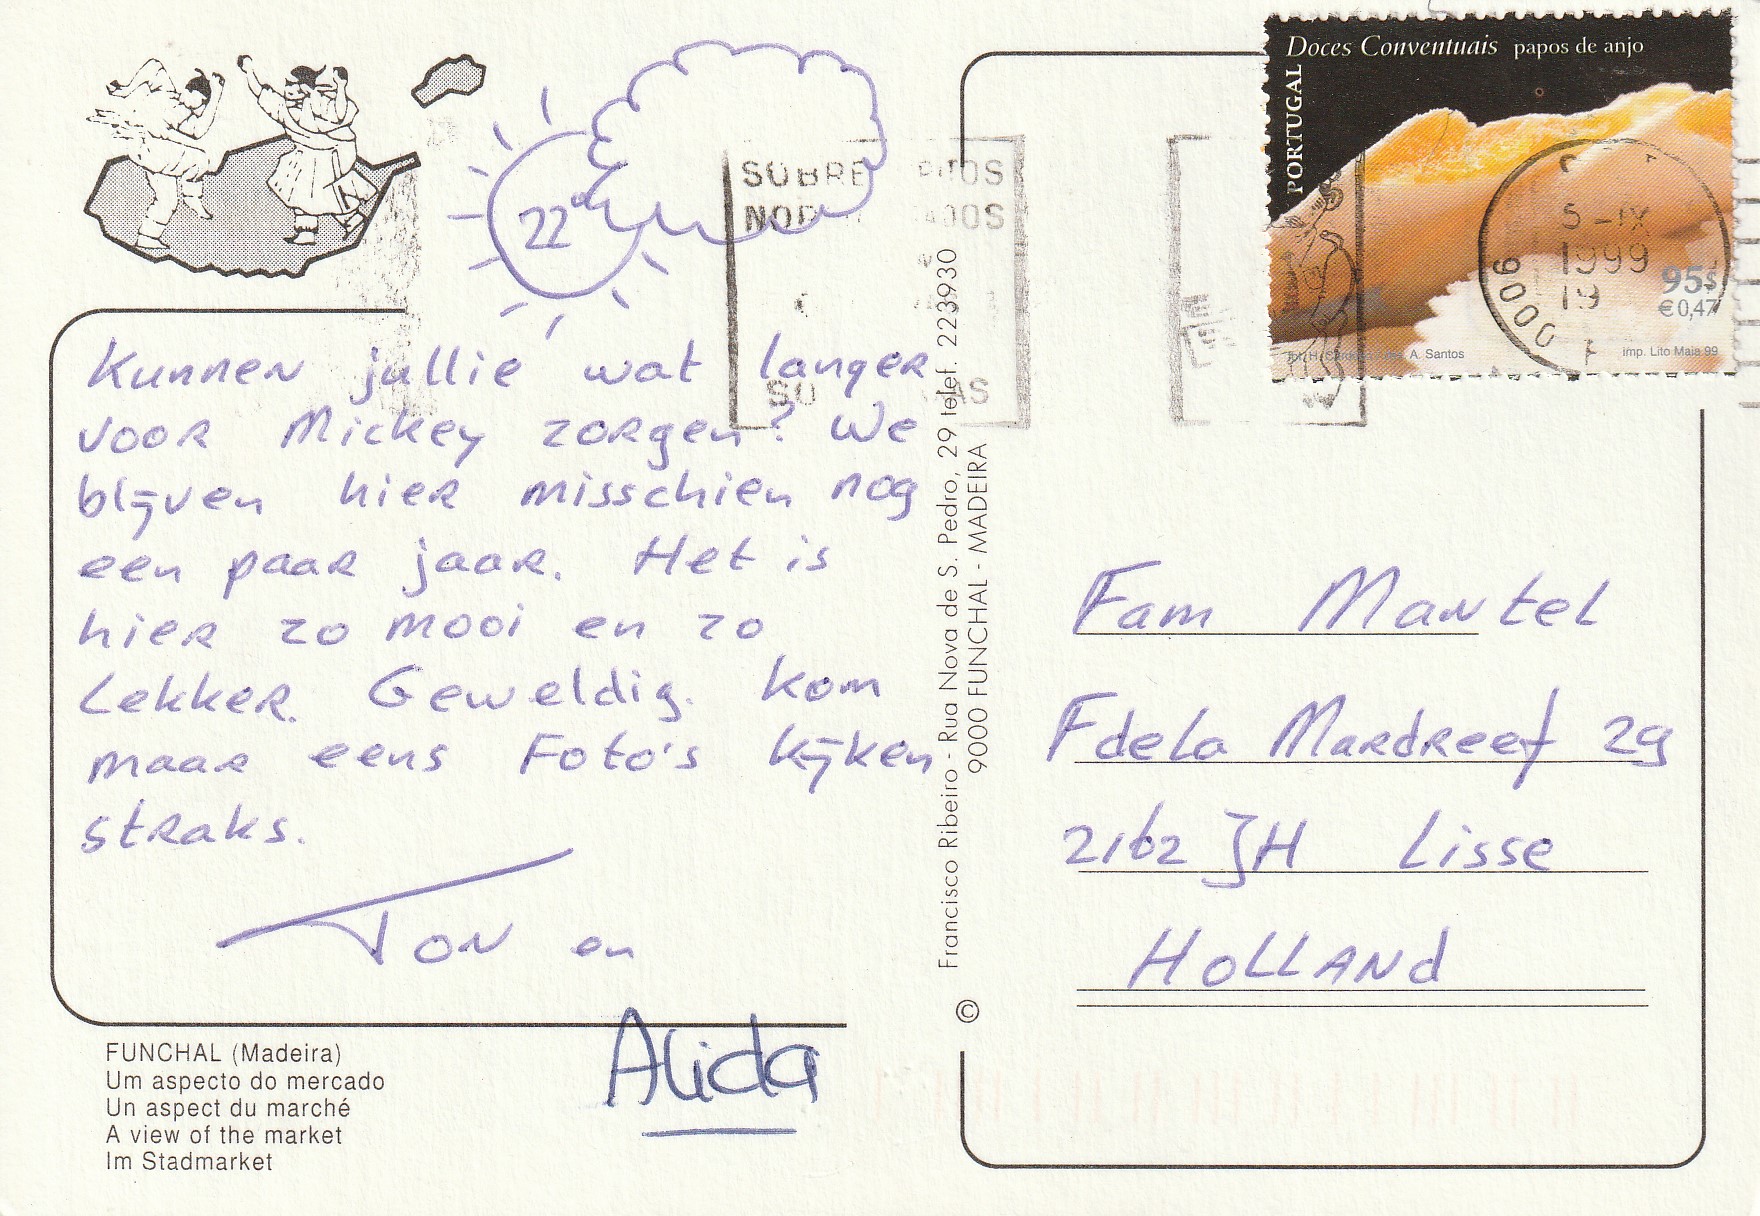 Doces Conventuais papos de anjo
PORTUGAL
95$
€0,47
A. Santos
imp. Lito Maia 99
5-IX
1999
19
9000
SOBRE
22°
Kunnen jullie wat langer
voor Mickey zorgen? We
blijven hier misschien nog
een paar jaar. Het is
hier zo mooi en zo
Lekker. Geweldig. Kom
maar eens Foto's kijken
straks.
Ton en
Alida
FUNCHAL (Madeira)
Um aspecto do mercado
Un aspect du marché
A view of the market
Im Stadmarket
© Francisco Ribeiro - Rua Nova de S. Pedro, 29 telef. 223930
9000 FUNCHAL - MADEIRA
Fam Mantel
F dela Mardreef 29
2162 JH Lisse
HOLLAND